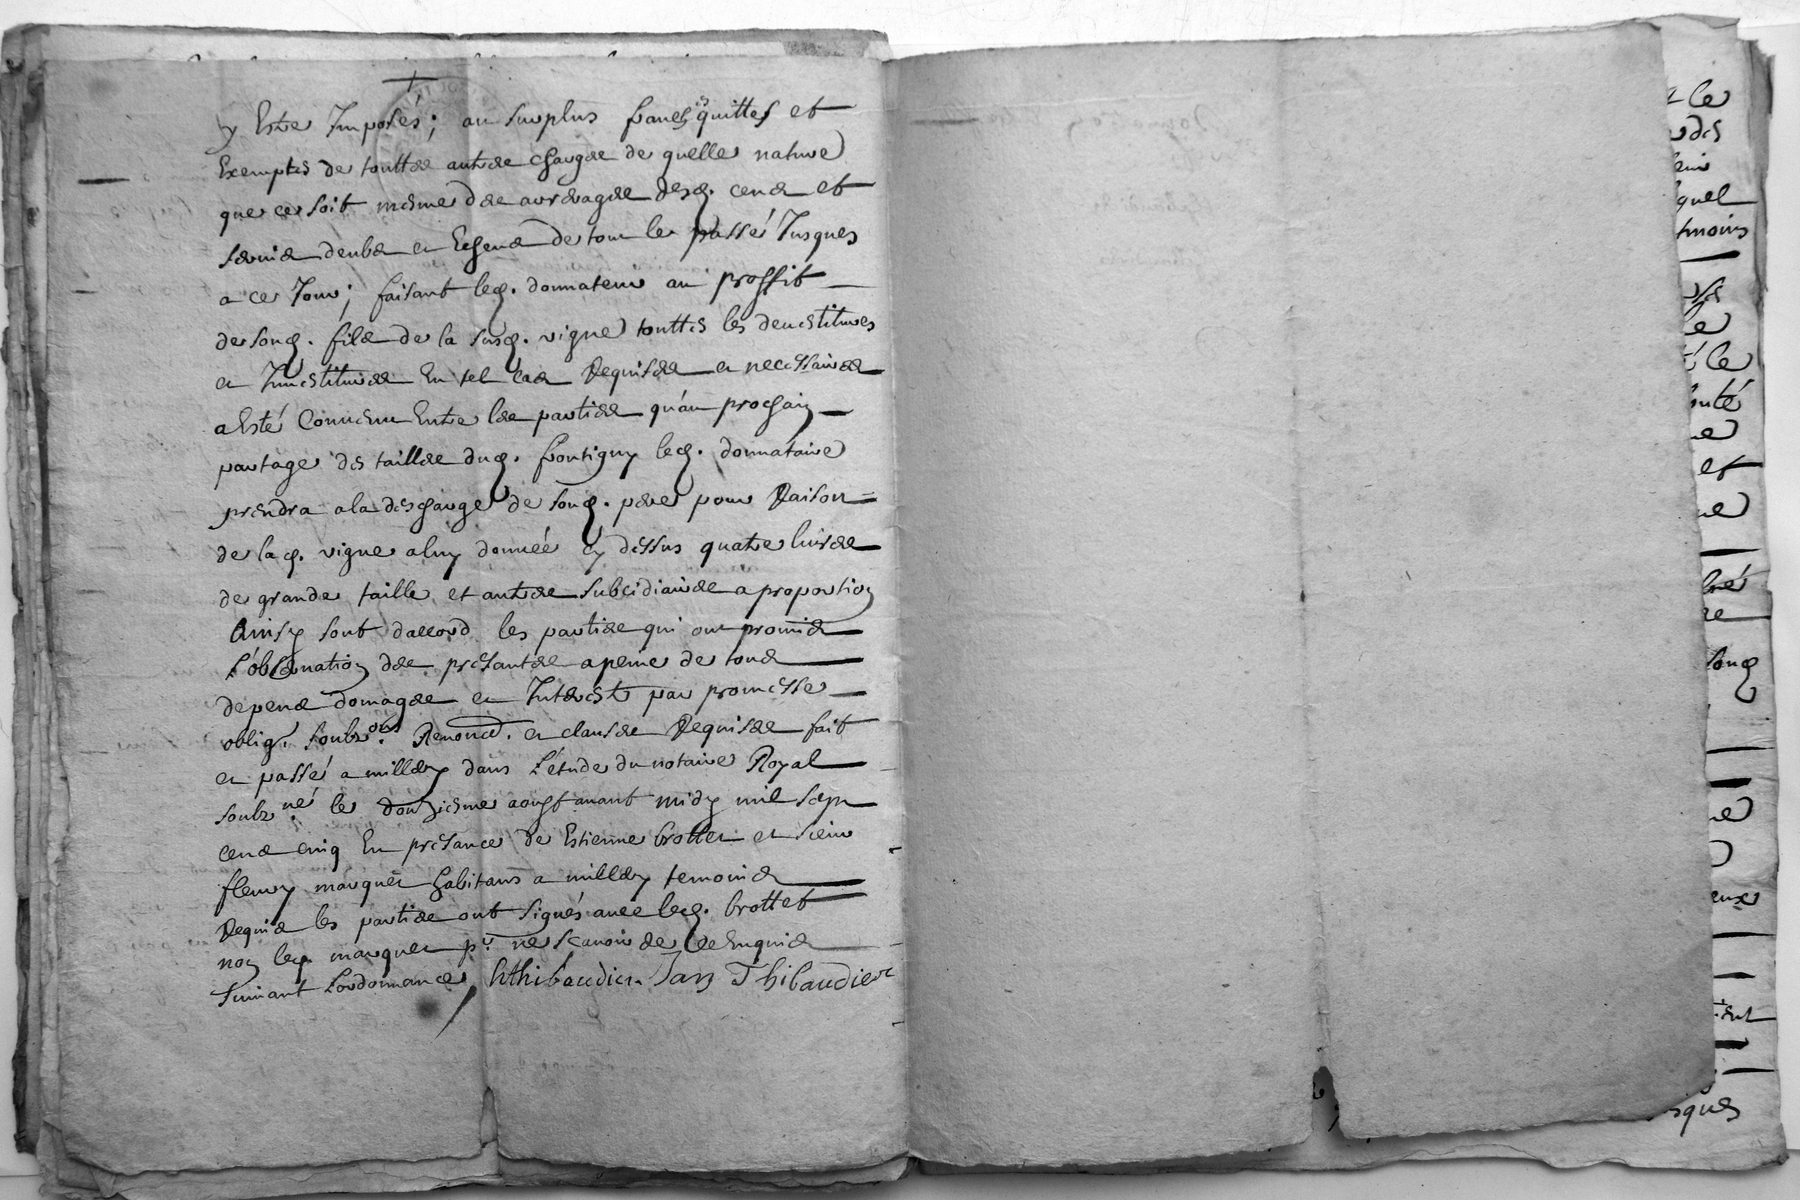 y Estre Imposés; au surplus francs quittes et
Exemptes de touttes autres charges de quelle nature
que ce soit mesme des arrerages desd. cens et
servis deubs et Echeus de tout le passé Jusques
a ce Jour; faisant led. donnateur au proffit
de sond. fils de la susd. vigne touttes les devestitures
et Jnvestitures En tel cas Requises et necessaires
a Esté Convenu Entre les parties qu'au prochain
partage des tailles dud. frontigny led. donnataire
prendra a la descharge de sond. pere pour Raison
de lad. vigne a luy donnée cy dessus quatre livres
de grande taille et autres subcidiaires a proportion
Ainsy sont d'accord les parties qui ont promis
L'observation des presantes a peine de tous
depens domages et Interests par promesse
oblig. soubz.ons Renonc. et clauses Requises fait
et passé a millery dans L'étude du notaire Royal
soubz.né le douziesme aoust avant midy mil sept
cens cinq En presance de Estienne brottet et sieur
fleury marquet habitans a millery temoins
Requis les parties ont signés avec led. brottet
non led. marquet p.r ne scavoir de ce Enquis
suivant Lordonnance, hthibaudier Jan Thibaudier
et le
quel
temoins
le
et
sond
sques